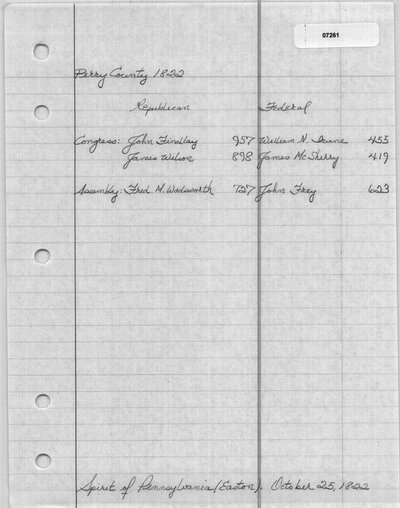 07261
Perry County 1822
Republican Federal
Congress: John Findlay 957 William N. Irvine 455
James Wilson 898 James McSherry 419
Assembly: Fred. M. Wadsworth 727 John Frey 623
Spirit of Pennsylvania (Easton). October 25, 1822